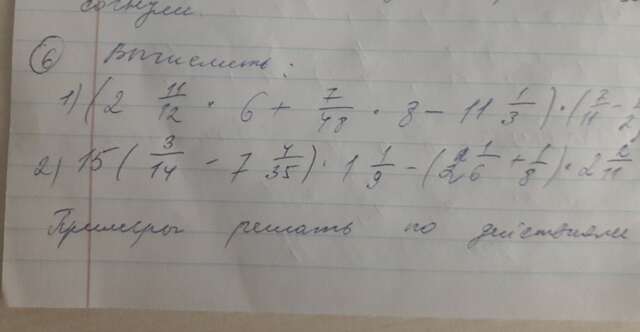 согнули.
6 Вычислить:
1) (2 11/12 · 6 + 7/48 · 8 - 11 1/3) · (3/11 -
2) 15 ( 3/14 - 7 4/35 ) · 1 1/9 - ( 2 1/6 + 1/8 ) · 2 2/11
Примеры решать по действиям